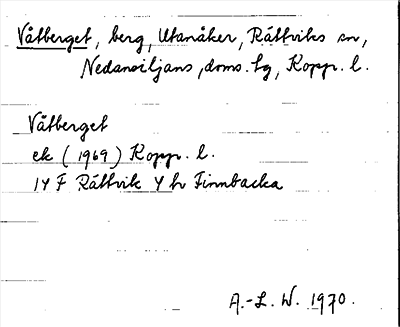 Våtberget, berg, Utanåker, Rättviks sn,
Nedansiljans, doms. lg, Kopp. l.
Våtberget
ek (1969) Kopp. l.
14 F Rättvik 4 h Finnbacka
A.-L. W. 1970.